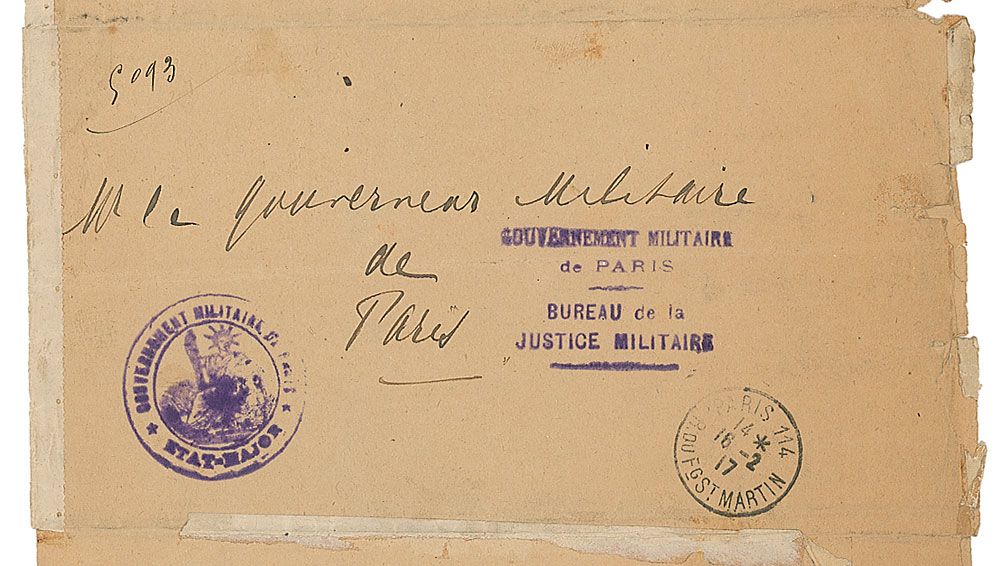 5093
Mr le Gouverneur Militaire
de
Paris
GOUVERNEMENT MILITAIRE
de PARIS
BUREAU de la
JUSTICE MILITAIRE
GOUVERNEMENT MILITAIRE DE PARIS
★ ETAT-MAJOR ★
PARIS 114
14 *
16 -2
17
R. DU FG ST MARTIN